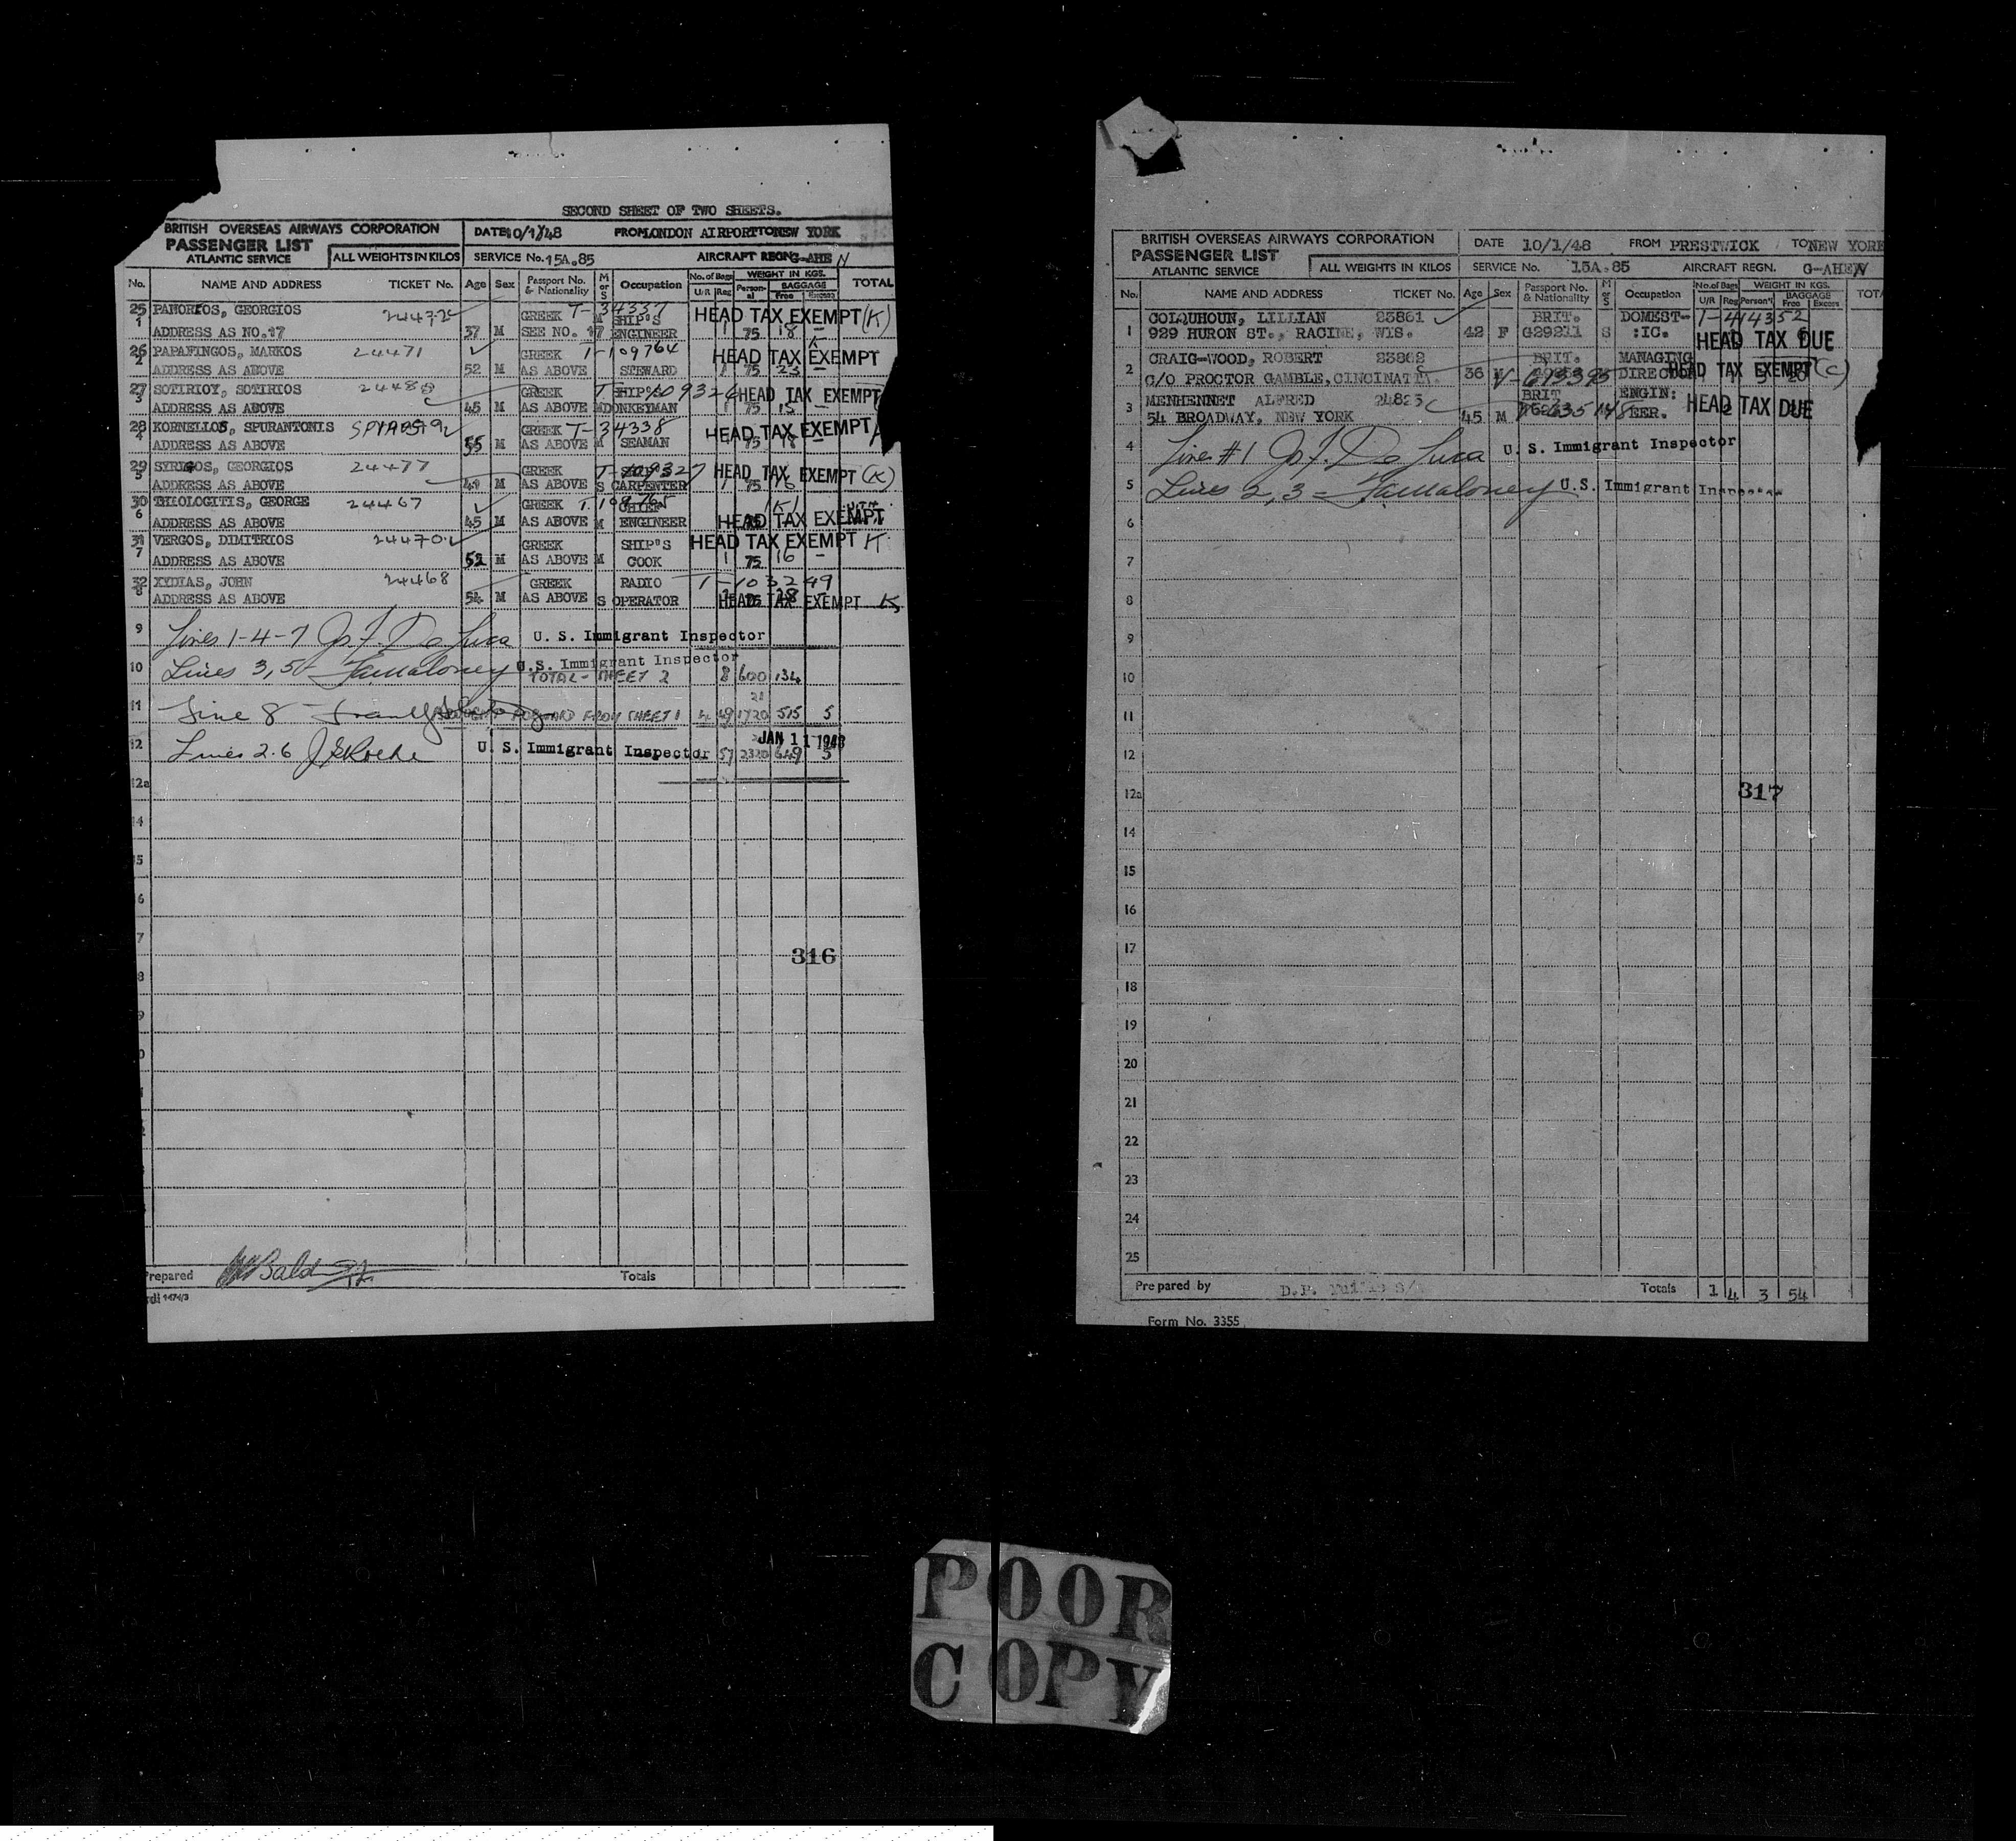 SECOND SHEET OF TWO SHEETS.
BRITISH OVERSEAS AIRWAYS CORPORATION
PASSENGER LIST
ATLANTIC SERVICE
ALL WEIGHTS IN KILOS
DATE 10/1/48 FROM LONDON AIRPORT TO NEW YORK
SERVICE No. 15A.85 AIRCRAFT REGN. G-AHEN
No. NAME AND ADDRESS TICKET No. Age Sex Passport No. & Nationality M or S Occupation No. of Bags U/R Reg WEIGHT IN KGS. Personal BAGGAGE Free Excess TOTAL
25 PANORIOS, GEORGIOS 24472 GREEK T-34337 SHIP'S HEAD TAX EXEMPT (K)
1 ADDRESS AS NO.17 37 M SEE NO. 17 M ENGINEER 1 75 18 -
26 PAPAFINGOS, MARKOS 24471 GREEK T-109764 HEAD TAX EXEMPT
2 ADDRESS AS ABOVE 52 M AS ABOVE STEWARD 1 75 23 -
27 SOTIRIOY, SOTIRIOS GREEK SHIP'S HEAD TAX EXEMPT
3 ADDRESS AS ABOVE 45 M AS ABOVE M DONKEYMAN 1 75 15 -
28 KORNELLOS, SPURANTONIS GREEK T-34338 HEAD TAX EXEMPT
4 ADDRESS AS ABOVE 55 M AS ABOVE M SEAMAN 75 18
29 SYRIGOS, GEORGIOS 24477 GREEK T-109327 HEAD TAX EXEMPT (K)
5 ADDRESS AS ABOVE 41 M AS ABOVE S CARPENTER 1 75
30 THIOLOGITIS, GEORGE 24467 GREEK T.109765 CHIEF
6 ADDRESS AS ABOVE 45 M AS ABOVE M ENGINEER HEAD TAX EXEMPT
31 VERGOS, DIMITRIOS 24470 GREEK SHIP'S HEAD TAX EXEMPT K
7 ADDRESS AS ABOVE 52 M AS ABOVE M COOK 1 75 16 -
32 XYDIAS, JOHN 24468 GREEK RADIO T-103249
8 ADDRESS AS ABOVE 54 M AS ABOVE S OPERATOR HEAD TAX EXEMPT K
9 Lines 1-4-7 Jos. F. De Luca U. S. Immigrant Inspector
10 Lines 3, 5 - Maloney U.S. Immigrant Inspector
TOTAL - SHEET 2 8 600 134
11 Line 8 BROUGHT FORWARD FROM SHEET 1 4 49 1720 515 5
12 Lines 2.6 U. S. Immigrant Inspector 57 2320 649 5
JAN 11 1948
12a
14
15
16
17
316
18
19
Prepared Totals
BRITISH OVERSEAS AIRWAYS CORPORATION
PASSENGER LIST
ATLANTIC SERVICE
ALL WEIGHTS IN KILOS
DATE 10/1/48 FROM PRESTWICK TO NEW YORK
SERVICE No. 15A.85 AIRCRAFT REGN. G-AHEN
No. NAME AND ADDRESS TICKET No. Age Sex Passport No. & Nationality M or S Occupation No. of Bags U/R Reg WEIGHT IN KGS. Person'l BAGGAGE Free Excess TOTA
COLQUHOUN, LILLIAN 23861 BRIT. DOMEST- 1-414352
1 929 HURON ST., RACINE, WIS. 42 F G29211 S :IC. HEAD TAX DUE
CRAIG-WOOD, ROBERT 23862 BRIT. MANAGING
2 C/O PROCTOR GAMBLE, CINCINATTI. 36 M V-613395 DIRECTOR HEAD TAX EXEMPT (C)
MENHENNET ALFRED 24823 BRIT ENGIN:
3 54 BROADWAY, NEW YORK 45 M EER. HEAD TAX DUE
4 Line #1 Jos. F. De Luca U. S. Immigrant Inspector
5 Lines 2, 3 - Maloney U.S. Immigrant Inspector
6
7
8
9
10
11
12
12a
317
14
15
16
17
18
19
20
21
22
23
24
25
Prepared by Totals 1 4 3 54
Form No. 3355
POOR
COPY